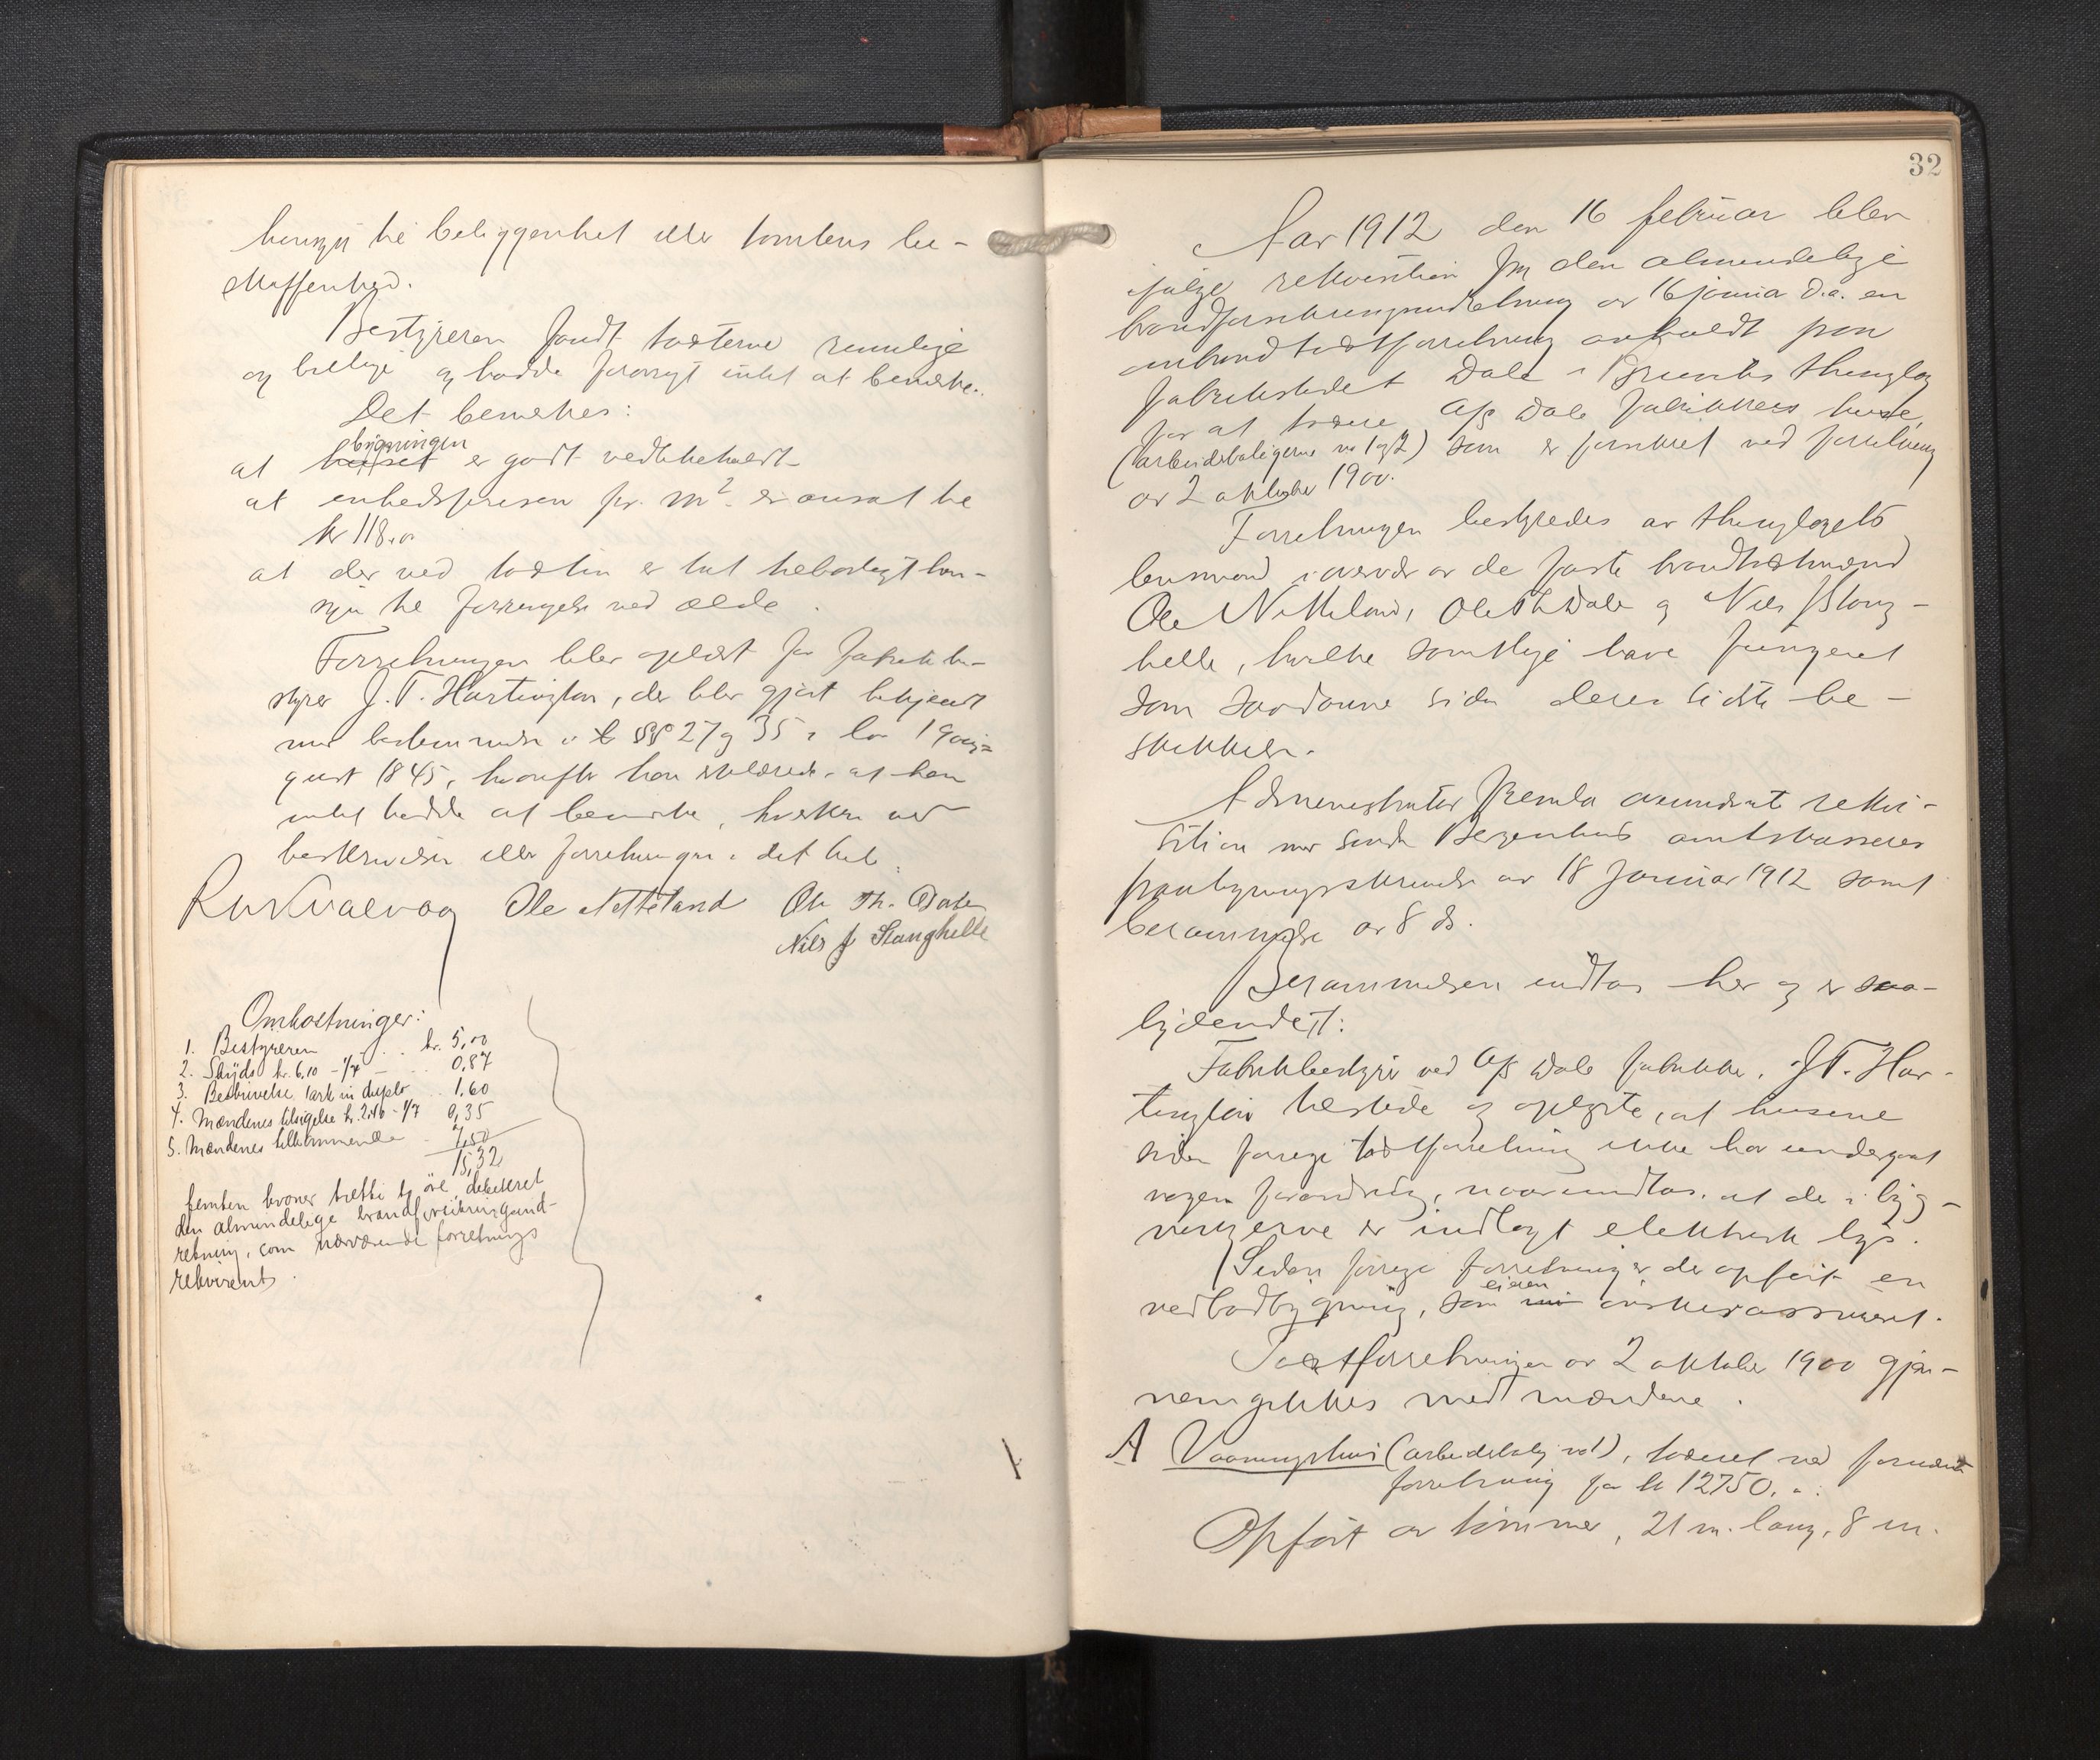 hensyn til beliggenhet eller tomtens be-
skaffenhed.
Bestyreren fandt taxterne rimelige
og billige og hadde forøvrigt intet at bemerke.
Det bemerkes:
bygningen
at huset er godt vedlikeholdt
at enhedsprisen pr. m². er ansat til
kr 118.00
at der ved taxten er tat tilbørligt hen-
syn til forringelse ved ælde.
Forretningen blev oplæst for fabrikbe-
styrer J. T. Hartington, der blev gjort bekjendt
med bestemmelse i §§ 27 og 35 i lov 19 au-
gust 1845, hvorefter han erklærede at han
intet hadde at bemerke, hverken ved
beskrivelsen eller forretningen i det hele.
Ole Netteland Ole Th. Dale
Nils J Stanghelle
Omkostninger:
1. Bestyreren kr. 5,00
2. Skyds kr. 6,10 - 1/7 0,87
3. Beskrivelse 1 ark in duplo 1,60
4. Mændenes tilsigelse kr. 2,40 - 1/7 0,35
5. Mændenes tilkommende 7,50
15,32
femten kroner tretti to øre debiteret
den almindelige brandforsikringsind-
retning, som nærværende forretnings
rekvirent.
32
Aar 1912 den 16 februar blev
ifølge rekvisition fra den almindelige
brandforsikringsindretning av 16 januar d.a. en
ombrandtaxtforretning avholdt paa
fabrikstedet Dale i Bruviks thinglag
for at taxere A/S Dale fabrikkers huse,
(arbeiderboligerne no 1 og 2) som er forsikret ved forretning
av 2 oktober 1900.
Forretningen bestyredes av thinglagets
lensmand i overvær av de faste brandtaxtmænd
Ole Netteland, Ole Th Dale og Nils J Stang-
helle, hvilke samtlige have fungeret
som saadanne siden deres sidste be-
skikkelse.
Administrator fremla ovennævnte rekvi-
sition med Søndre Bergenhus amtskasserers
paategningsskrivelse av 18 januar 1912 samt
berammelse av 8 ds.
Berammelsen indtas her og er saa-
lydende:
Fabrikbestyrer ved A/S Dale fabrikker, J.T. Har-
tington tilstede og oplyste, at husene
siden forrige taxtforretning ikke har undergaat
nogen forandring, naar undtas, at de i byg-
ningerne er indlagt elektrisk lys.
Siden forrige forretning er der opført en
eieren
vedbodbygning, som ønskes assureret.
Taxtforretningen av 2 oktober 1900 gjen-
nemgikkes med mændene.
A Vaaningshus (arbeiderbolig no 1), taxeret ved forrige
forretning for kr 12750. -:
Opført av tømmer, 21 m. lang, 8 m.